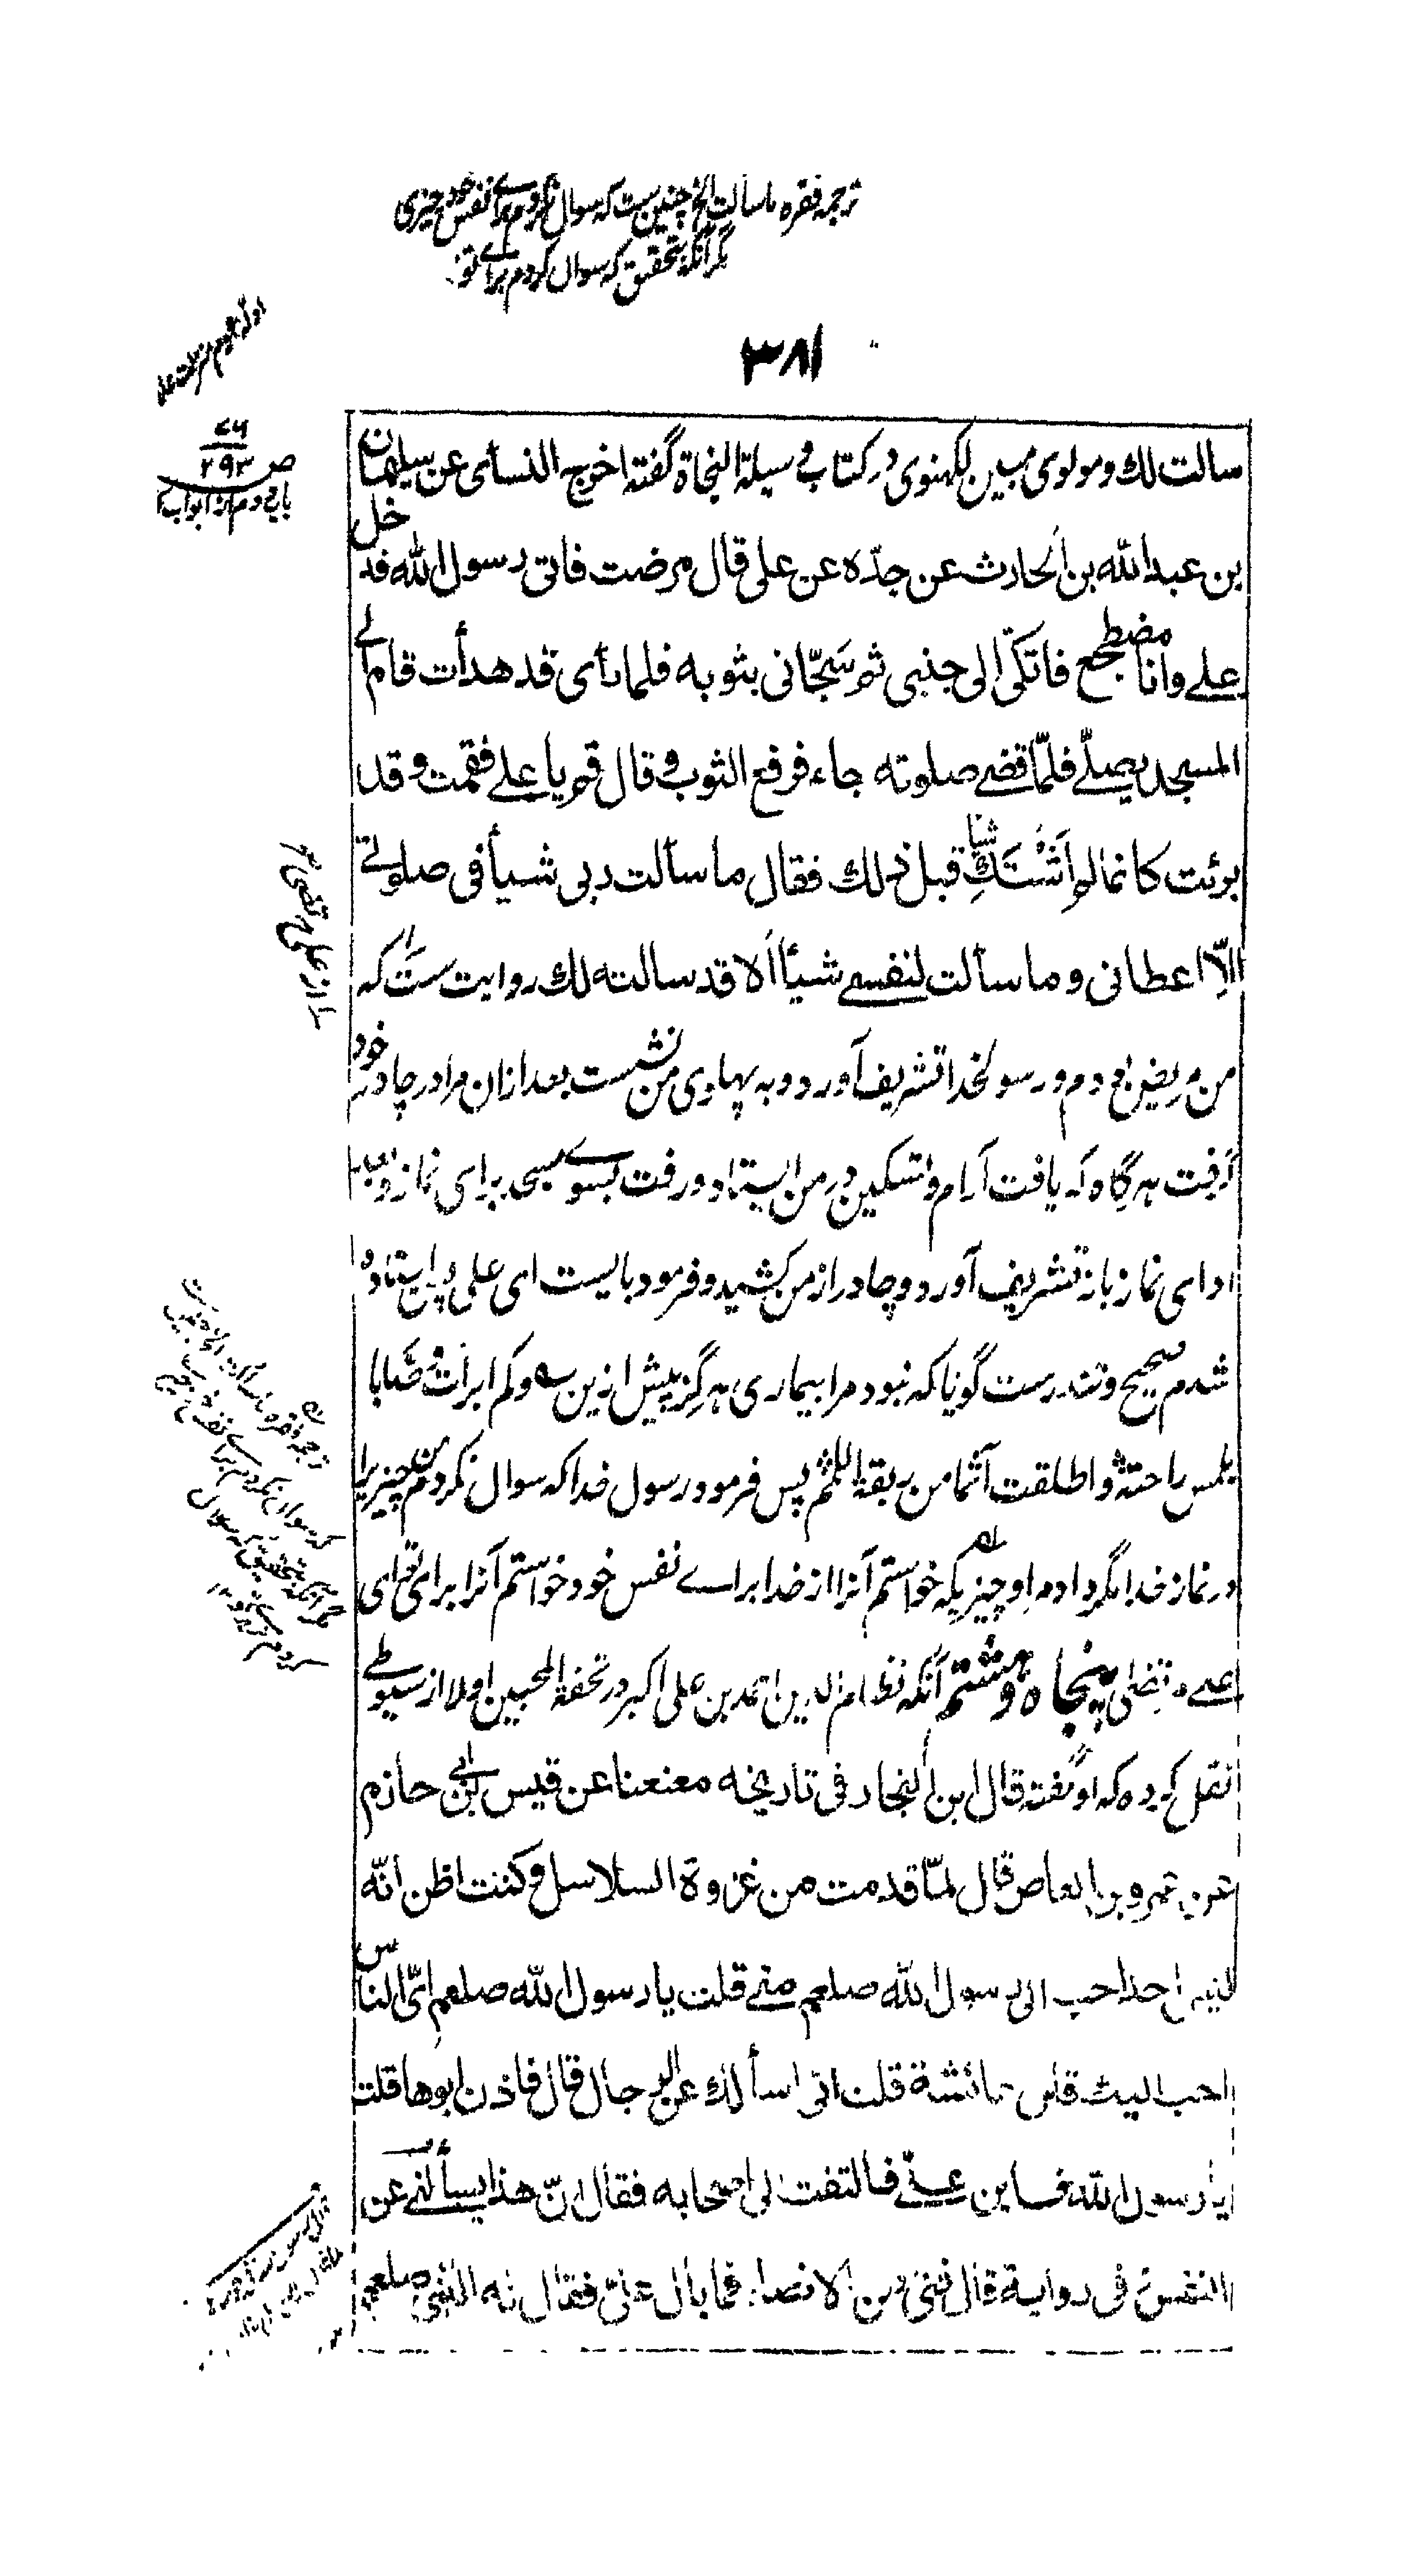 ترجمه فقره ما سألت الخ چنین ست که سوال نکردم برائے نفس خود چیزی
مگر آنکه بتحقیق که سوال کردم برائے تو
۳۸۱
سالت لك و مولوی مبین لکهنوی در کتاب وسیلة النجاة گفته اخرج النسأی عن سلیمان
بن عبدالله بن الحارث عن جدّه عن علی قال مرضت فاتی رسول الله فدخل
علے وانا مضطجع فاتکّی الی جنبی ثم سَجّانی بثوبه فلما رأی قد هدأت قام الے
المسجد یصلّے فلمّا قضے صلوته جاء فرفع الثوب و قال قم یا علے فقمت و قد
برئت کانما لم اَشْتَكِ شیأ قبل ذلك فقال ما سألت ربی شیأ فی صلوتے
الّا اعطانی و ما سألت لنفسے شیأ الا قد سالته لك روایت ست که
من مریض بودم و رسولخدا تشریف آورد و به پهلوی من نشست بعد ازان مرا در چادر خود
گرفت هرگاه که یافت آرام و تسکین در من ایستاد و رفت بسوے مسجد برای نماز و بعد
ادای نماز باز تشریف آورد و چادر از من کشید و فرمود بایست ای علی پس ایستاده
شدم صحیح و تندرست گویا که نبود مرا بیماری هرگز پیش ازین ؎ و کم ابرأت وصبا با
للمس راحته و اطلقت آثما من ربقة اللمم پس فرمود رسول خدا که سوال نکردم من چیزیرا
در نماز خدا مگر داد مرا و چیزیکه خواستم آنرا از خدا براے نفس خود خواستم آنرا برای تو ای
علے مرتضلی پنجاه و هشتم آنکه نظام الدین احمد بن علی اکبر در تحفة المحبین اولا از سیوطے
نقل کرده که او گفته قال ابن النجار فی تاریخه معنعنا عن قیس بن ابی حازم
عن عمرو بن العاص قال لمّا قدمت من غزوة السلاسل و کنت اظن انّه
لیس احد احب الی رسول الله صلعم منے قلت یا رسول الله صلعم ایّ الناس
احب الیك قال عائشة قلت انی اسألك عن الرجال قال فاذن ابوها قلت
یا رسول الله فاین علیّ فالتفت الی اصحابه فقال انّ هذا یسألنے عن
النفس فی روایة قال فتی من الانصار فما بال علیّ فقال له النبی صلعم
ص ۲۹۳